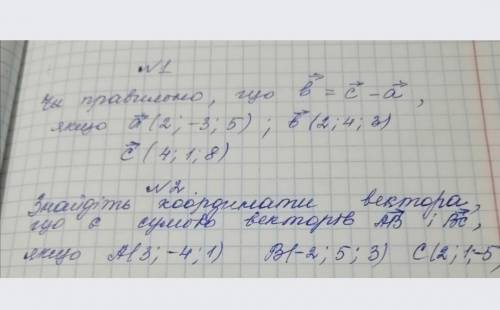 №1
Чи правильно, що b⃗ = c⃗ - a⃗,
якщо a⃗ (2; -3; 5); b⃗ (2; 4; 3)
c⃗ (4; 1; 8)
№2
Знайдіть координати вектора,
що є сумою векторів AB⃗ і BC⃗,
якщо A(3; -4; 1) B(-2; 5; 3) C(2; 1; -5